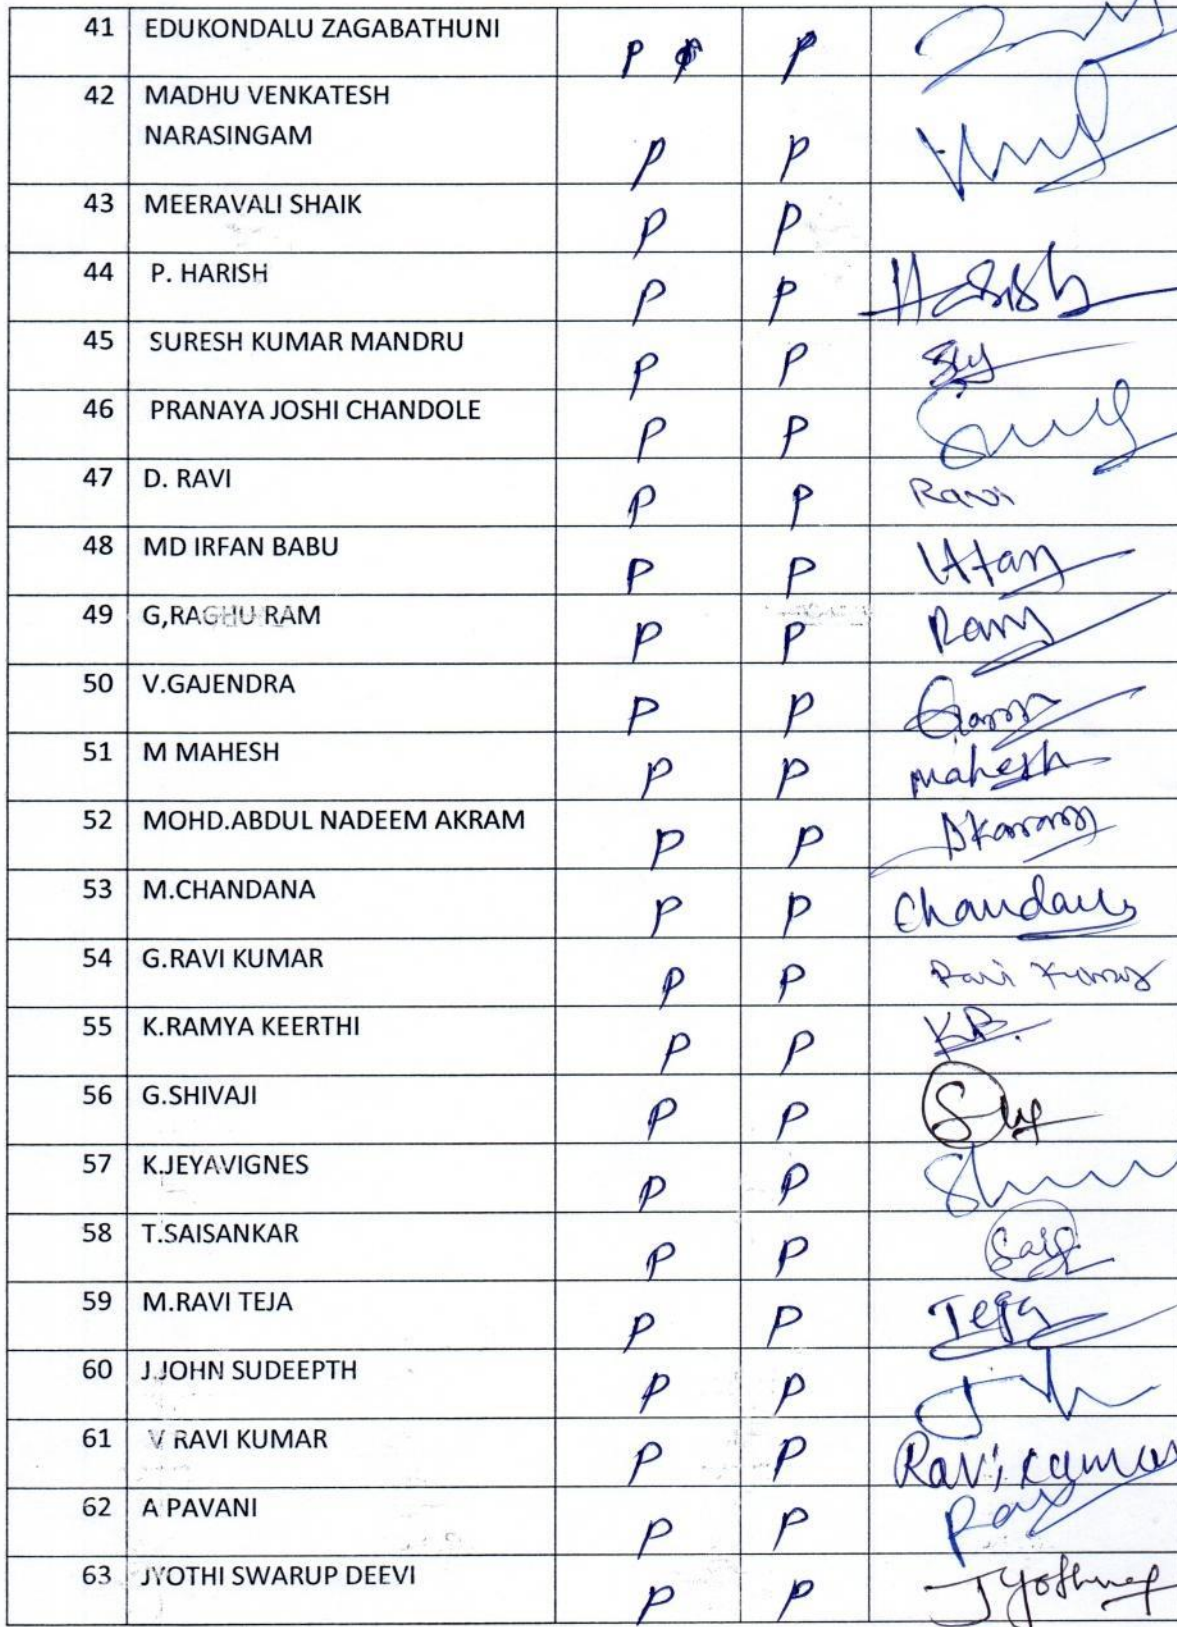 41 EDUKONDALU ZAGABATHUNI P P
42 MADHU VENKATESH
NARASINGAM P P
43 MEERAVALI SHAIK P P
44 P. HARISH P P Harish
45 SURESH KUMAR MANDRU P P
46 PRANAYA JOSHI CHANDOLE P P
47 D. RAVI P P Ravi
48 MD IRFAN BABU P P
49 G,RAGHU RAM P P Ram
50 V.GAJENDRA P P
51 M MAHESH P P Mahesh
52 MOHD.ABDUL NADEEM AKRAM P P
53 M.CHANDANA P P Chandana
54 G.RAVI KUMAR P P Ravi Kumar
55 K.RAMYA KEERTHI P P
56 G.SHIVAJI P P
57 K.JEYAVIGNES P P
58 T.SAISANKAR P P
59 M.RAVI TEJA P P Teja
60 J.JOHN SUDEEPTH P P
61 V RAVI KUMAR P P Ravi kumar
62 A PAVANI P P
63 JYOTHI SWARUP DEEVI P P